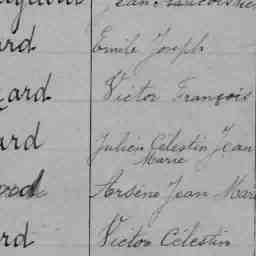 Jean
ard Emile Joseph
ard Victor François
ard Julien Célestin Jean
Marie
Arsène Jean Mari
ard Victor Célestin